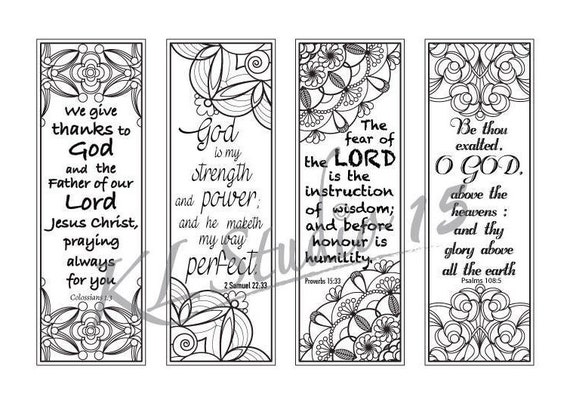 We give
thanks to
God
and the
Father of our
Lord
Jesus Christ,
praying
always
for you
Colossians 1:3
God
is my
strength
and power;
and he maketh
my way
perfect
2 Samuel 22:33
The
fear of
the LORD
is the
instruction
of wisdom;
and before
honour is
humility.
Proverbs 15:33
Be thou
exalted,
O GOD,
above the
heavens :
and thy
glory above
all the earth
Psalms 108:5
KL Studio 15